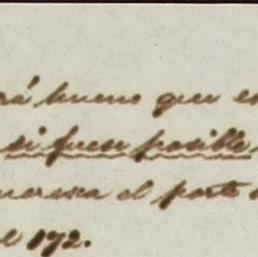 rá bueno que es
si fuese posible
meresca el porte
el 172.